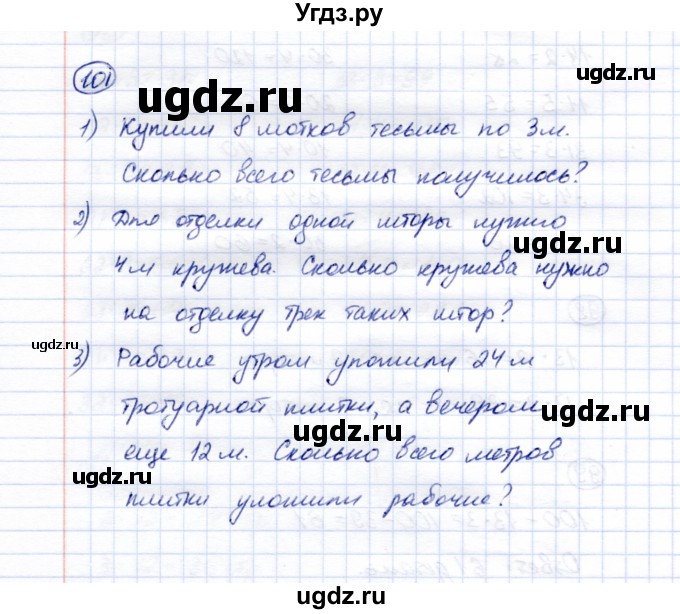 Угдз.ру
101
ugdz.ru
1) Купили 8 мотков тесьмы по 3 м.
Сколько всего тесьмы получилось?
ugdz.ru
2) Для отделки одной шторы нужно
ugdz.ru
4 м кружева. Сколько кружева нужно
на отделку трех таких штор?
ugdz.ru
ugdz.ru
3) Рабочие утром уложили 24 м
тротуарной плитки, а вечером
ugdz.ru
еще 12 м. Сколько всего метров
ugdz.ru
плитки уложили рабочие?
ugdz.ru
ugdz.ru
ugdz.ru